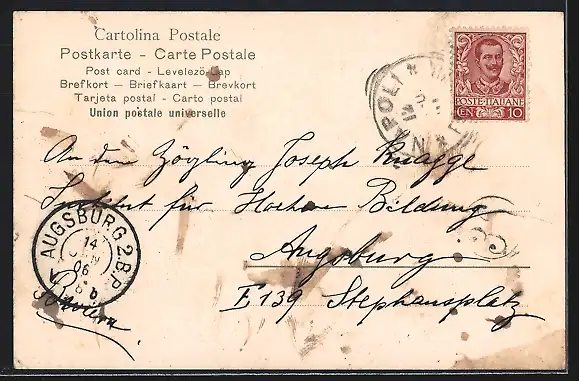 Cartolina Postale
Postkarte - Carte Postale
Post card - Levelező-Lap
Brefkort - Briefkaart - Brevkort
Tarjeta postal - Carto postal
Union postale universelle
POSTE·ITALIANE
CEN 10
NAPOLI
An den Zögling Joseph Knagge
Institut für Höhere Bildung
Augsburg
E 139 Stephansplatz
AUGSBURG 2.B.P.
14
06
Baviera